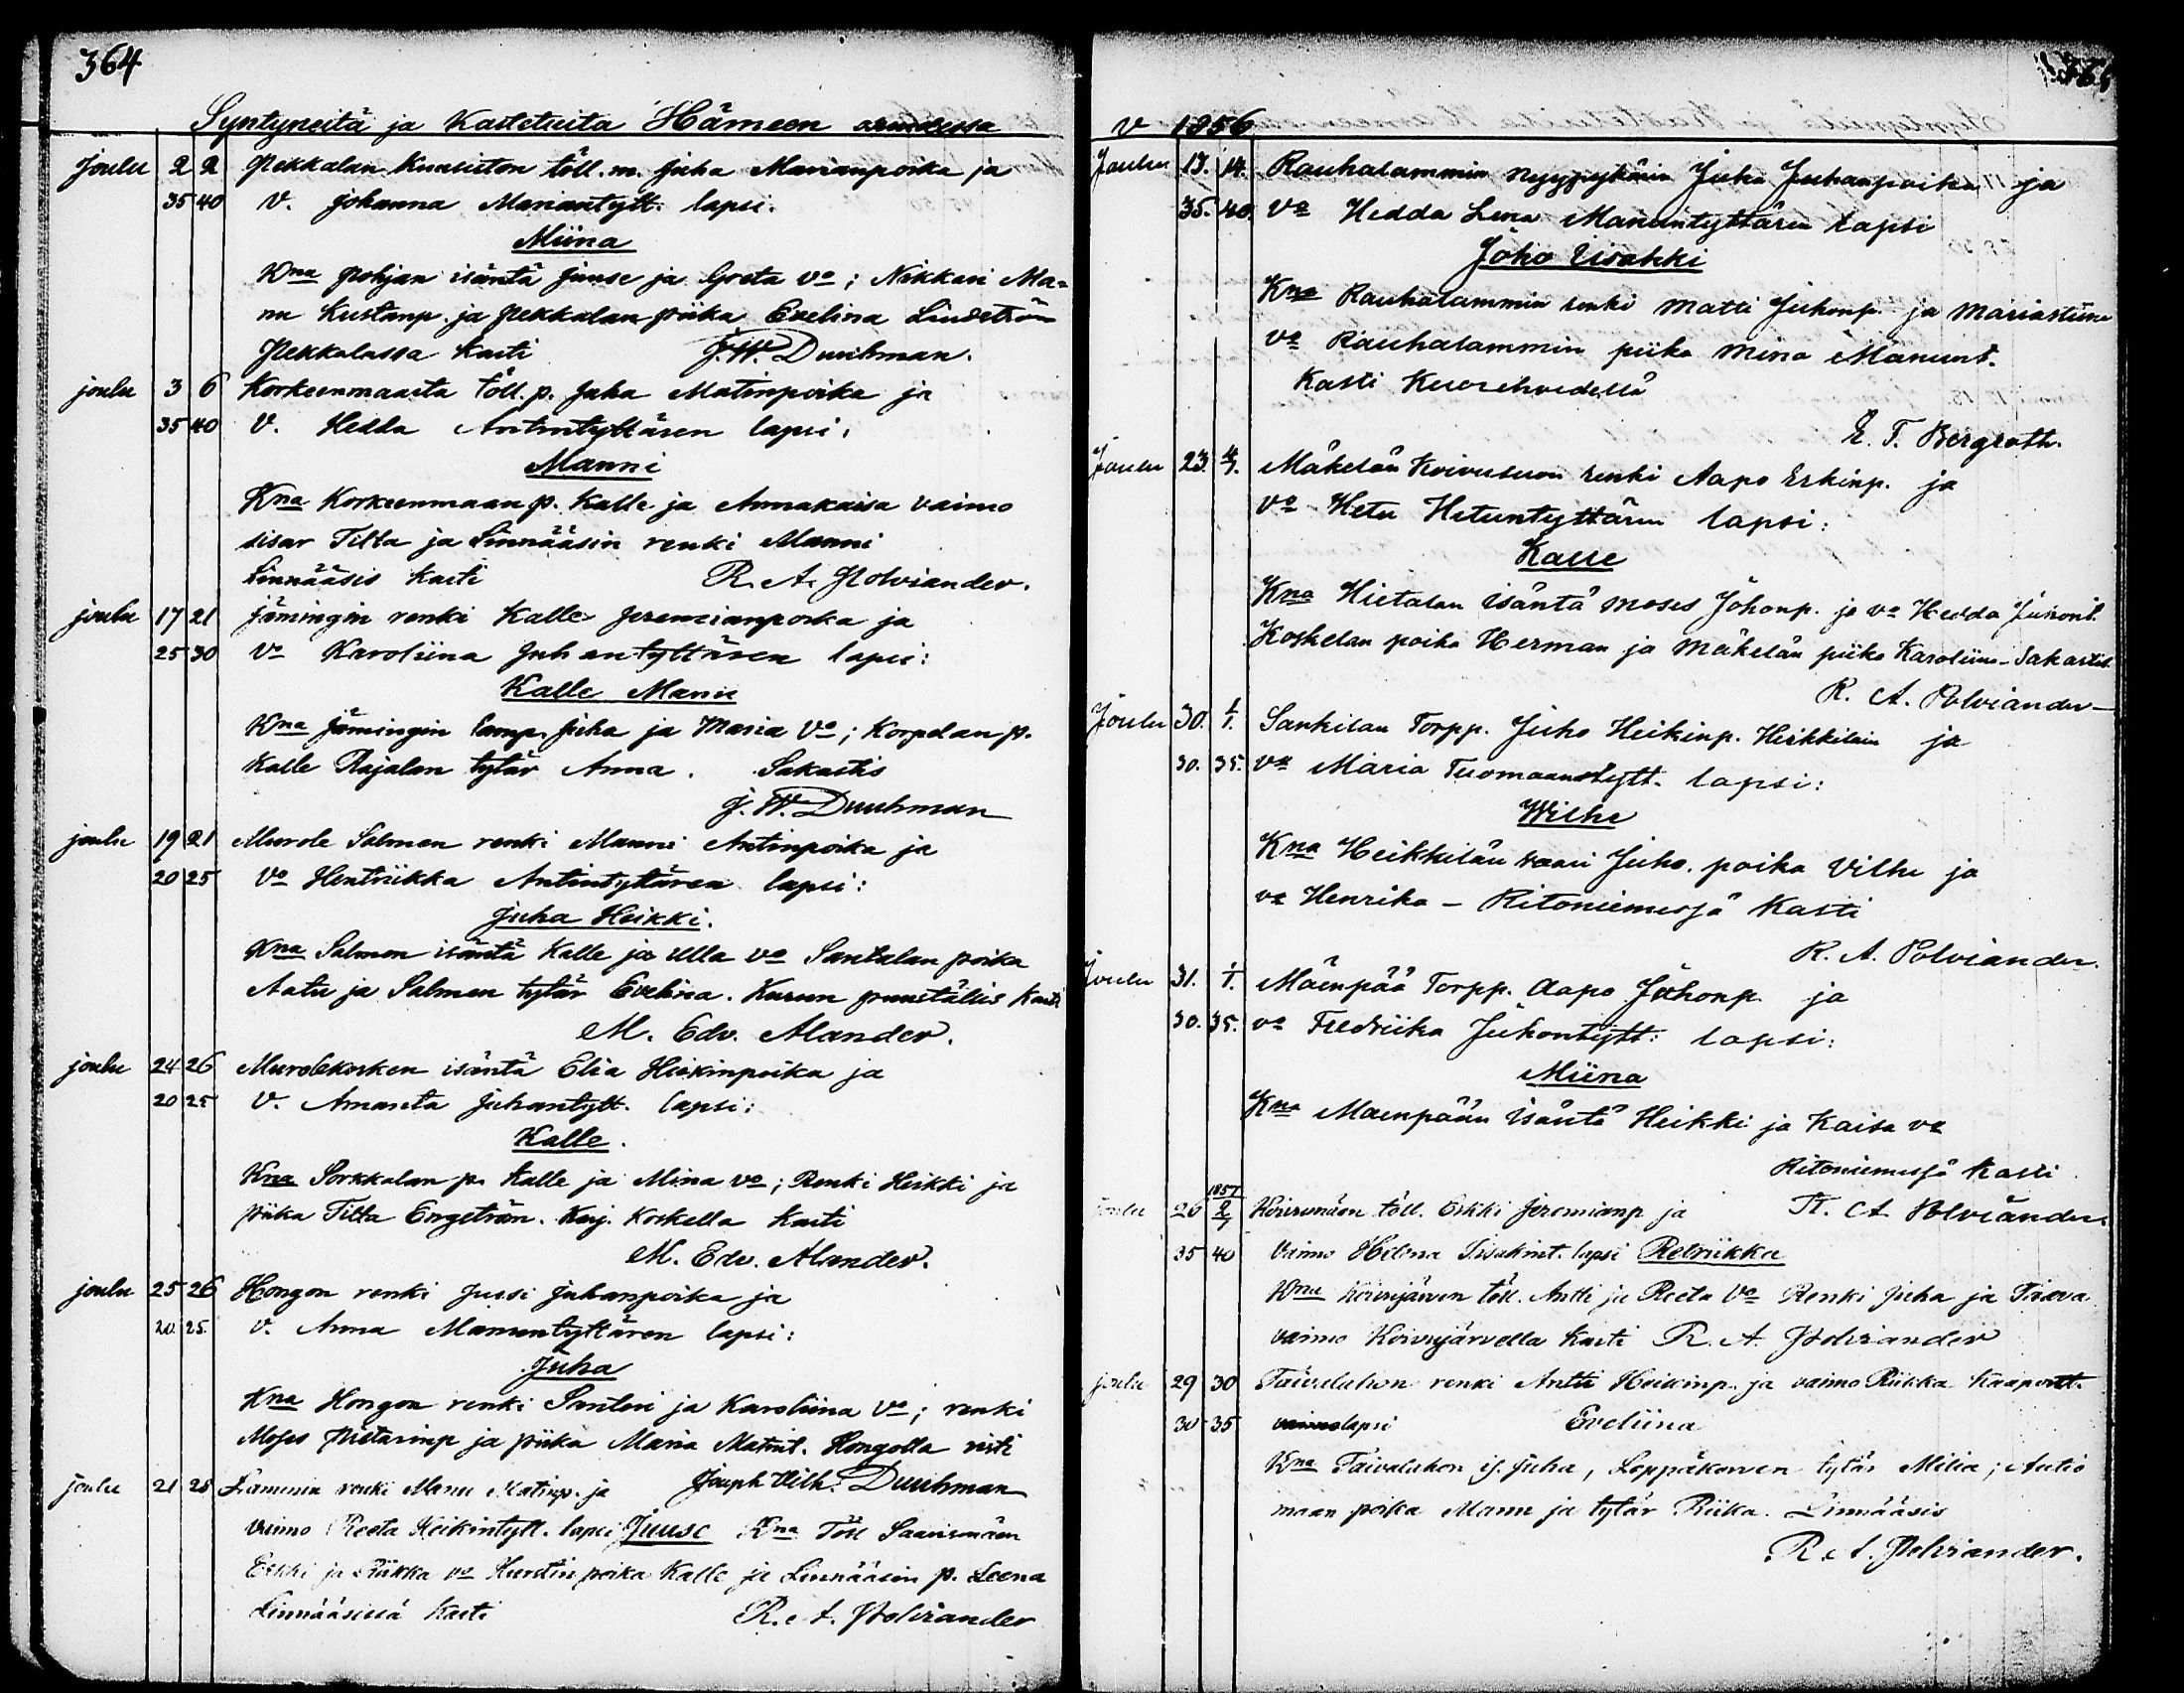 364
Syntyneitä ja Kastetuita Hämeen
joulu 2 2 Pekkalan Kuusiston töll. m. Juha Marianpoika ja
35 40 V. Johanna Mariantytt. lapsi.
Miina
Kna Pohjan isäntä Juuse ja Greta vo; Nikkari Ma=
nu Kustanp. ja Pekkalan piika Evelina Lindström
Pekkalassa kasti J. W. Duuhman.
joulu 3 6 Korkeenmaasta töll. p. Juha Matinpoika ja
35 40 V. Hedda Antintyttären lapsi.
Manni
Kna Korkeenmaan p. Kalle ja Annakaisa vaimo
sisar Tilta ja Linnääsin renki Manni
Linnääsis kasti R. A. Polviander.
joulu 17 21 Jämingin renki Kalle Jeremianpoika ja
25 30 vo Karoliina Juhantyttären lapsi:
Kalle Manu
Kna Jämingin lamp. Juha ja Maria vo; Korpelan p.
Kalle Rajalan tytär Anna. Sakastis
J. W. Duuhman
joulu 19 21 Murole Salmen renki Manni Antinpoika ja
20 25 vo Hentriikka Antintytären lapsi:
Juha Heikki.
Kna Salmen isäntä Kalle ja Ulla vo Santalan poika
Aatu ja Salmen tytär Evelina. Kurun puuställis kasti
M. Edv. Alander.
joulu 24 26 Murolekosken isäntä Elia Heikinpoika ja
20 25 V. Amanta Juhantytt. lapsi:
Kalle.
Kna Sorkkalan p. Kalle ja Mina vo; Renki Heikki ja
piika Tilta Engström. Karj. Koskella kasti
M. Edv. Alander.
joulu 25 26 Hongon renki Jussi Juhanpoika ja
20 25 V. Anna Manuntyttären lapsi:
Juha
Kna Hongon renki Santeri ja Karoliina vo; renki
Moses Pietarinp ja piika Maria Matint. Hongolla risti
joulu 21 25 Lammin renki Manu Matinp. ja Joseph Vilh. Duuhman
vaimo Reeta Heikintytt. lapsi Juuse Kna Töll Saarismäen
Erkki ja Riikka vo Hurstin poika Kalle ja Linnääsin p. Leena
Linnääsissä kasti R. A. Polviander
v 1856
Joulu 13. 14. Rauhalammin Juha Juhanpoika ja
35. 40. vo Hedda Lena Manuntyttären lapsi
Joho Iisakki
Kna Rauhalammin renki Matti Juhonp. ja Mariastiina
vo Rauhalammin piika Mina Manunt.
Kasti Kuorehvedellä
E. T. Bergroth.
Joulu 23. 4/1. Mäkelän Koivusuon renki Aapo Erkinp. ja
vo Hetu Hetuntyttären lapsi:
Kalle
Kna Hietalan isäntä Moses Johonp. ja vo Hedda Juhont.
Koskelan poika Herman ja Mäkelän piika Karoliina - Sakastis
R. A. Polviander -
Joulu 30. 1/1. Sankilan Torpp. Juho Heikinp. Heikkiläin ja
30. 35. vo Maria Tuomaanstytt. lapsi:
Wilhe
Kna Heikkilän vaari Juho. poika Vilhe ja
vo Henrika - Ritoniemessä Kasti
R. A. Polviander.
Joulu 31. 1/1. Mäenpää Torpp. Aapo Juhonp. ja
30. 35. vo Fredriika Juhontytt: lapsi:
Miina
Kna Mäenpään isäntä Heikki ja Kaisa vo
Ritoniemessä kasti
1857
joulu 26 2/1 Koivumäen töll. Erkki Jeremianp ja R. A. Polviander.
35 40 Vaimo Helena Iisakint. lapsi Retriikka
Kna Koivujärven töll. Antti ja Reeta vo Renki Juha ja
vaimo Koivujärvella kasti R. A. Polviander
joulu 29 30 Taivalahon renki Antti Heikinp. ja vaimo Riikka Kaapont.
30 35 lapsi Eveliina
Kna Taivalahon is. Juha, Leppäkorven tytär Milia; Autio
maan poika Manu ja tytär Riika. Linnääsis
R. A. Polviander.